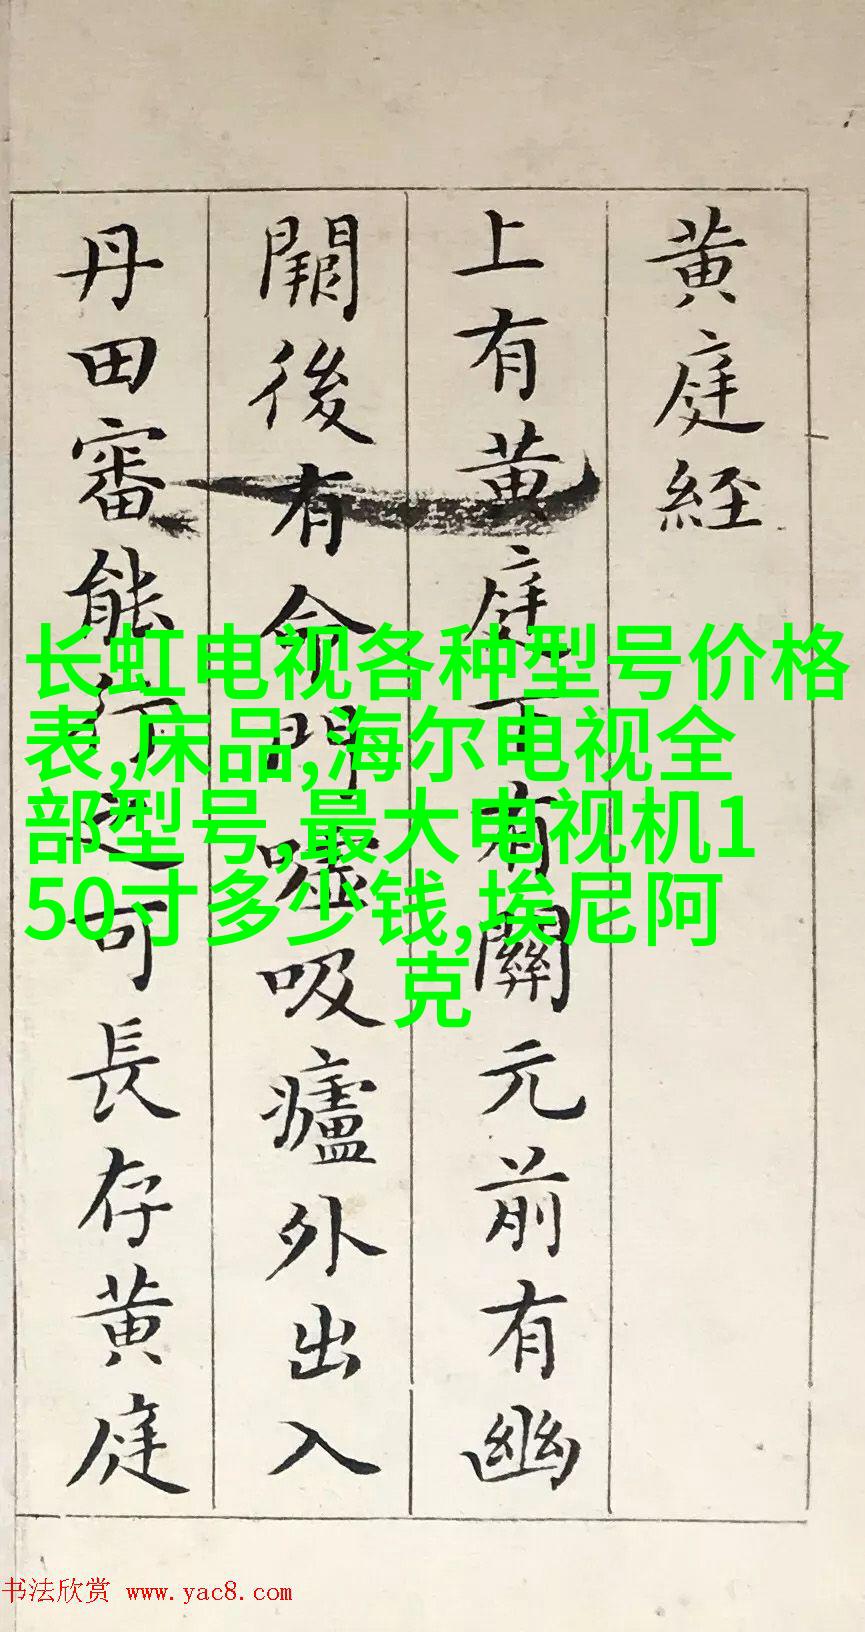 黄庭經
上有黄庭下有關元前有幽
闕後有命門噓吸廬外出入
丹田審能行之可長存黄庭
长虹电视各种型号价格
表,床品,海尔电视全
部型号,最大电视机1
50寸多少钱,埃尼阿
克
书法欣赏 www.yac8.com